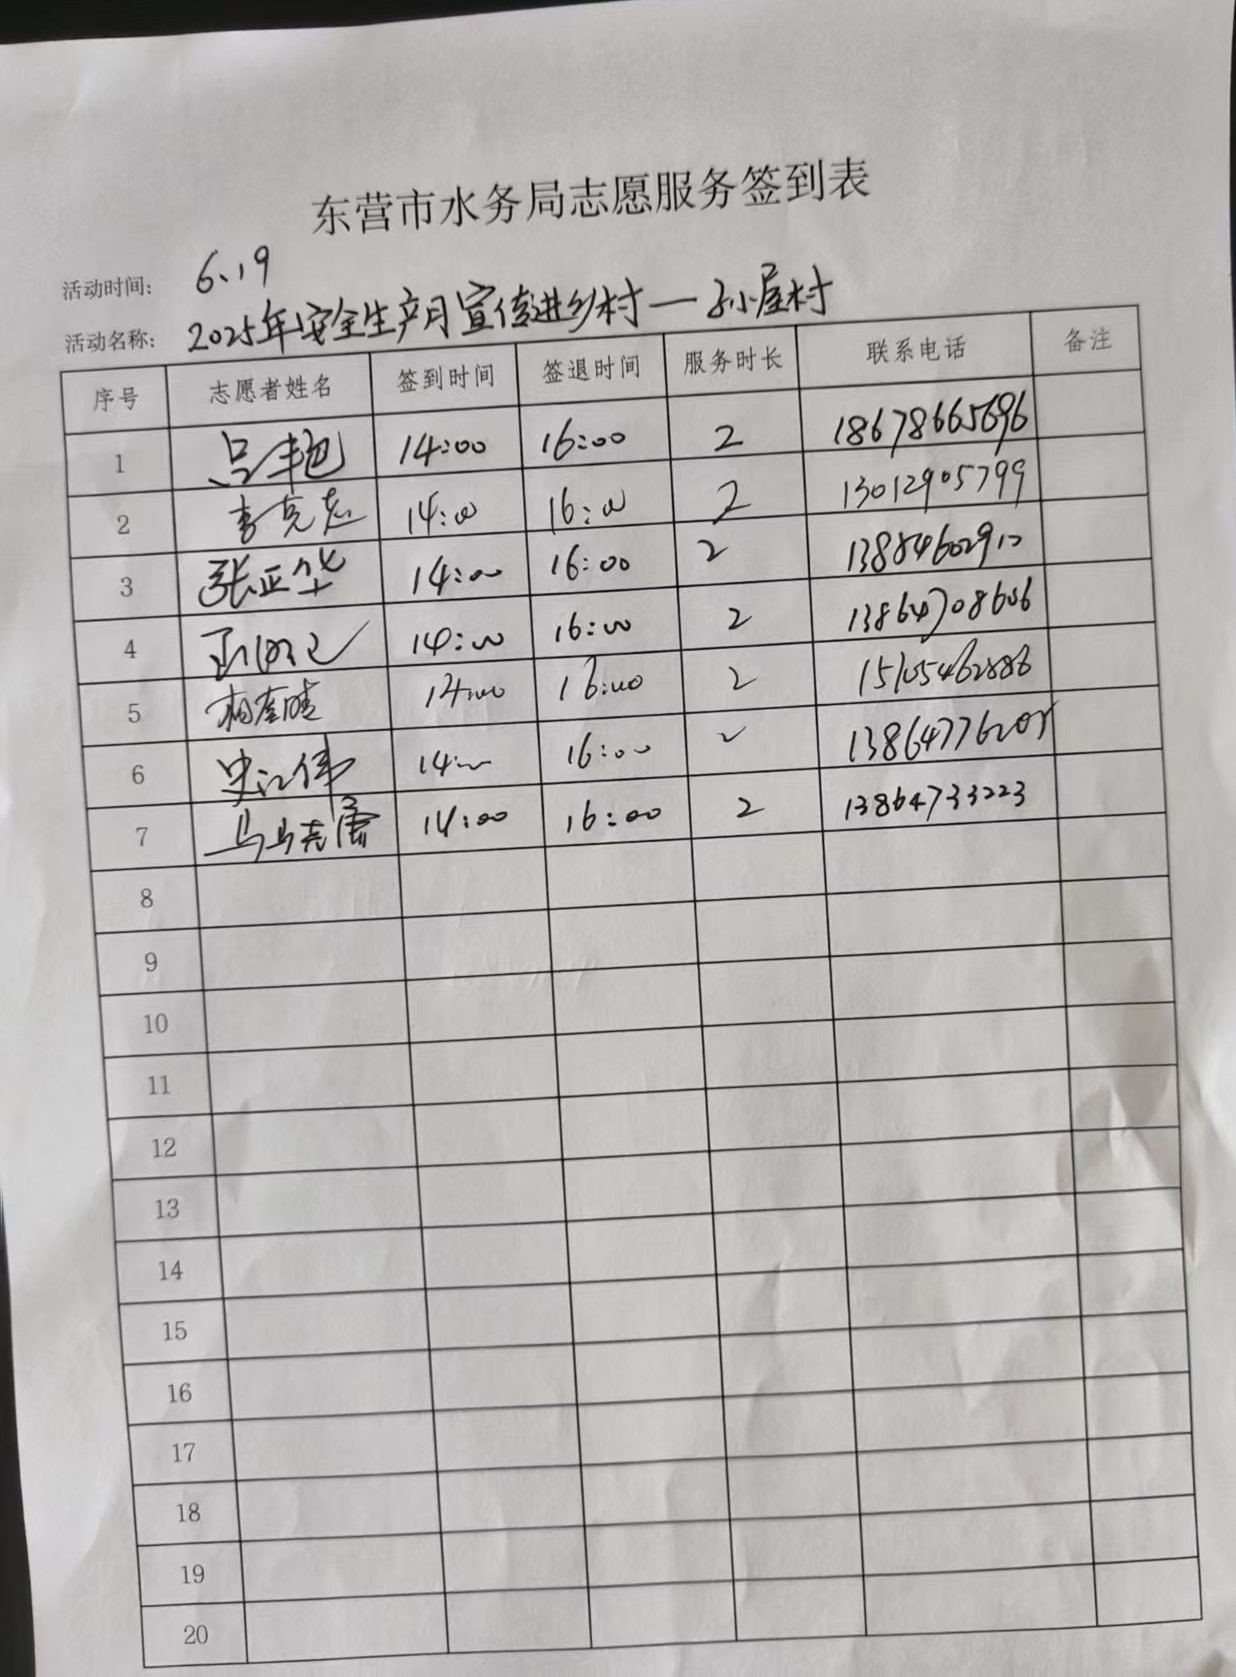 东营市水务局志愿服务签到表
活动时间： 6.19
活动名称： 2025年安全生产月宣传进乡村—孙小屋村
序号 志愿者姓名 签到时间 签退时间 服务时长 联系电话 备注
1 吕艳 14:00 16:00 2 18678665696
2 李克志 14:00 16:00 2 13012905799
3 张正华 14:00 16:00 2 13884602912
4 14:00 16:00 2 13864708606
5 相奎晴 14:00 16:00 2 15105462886
6 史江伟 14:00 16:00 2
7 马志蕾 14:00 16:00 2 13864733223
8
9
10
11
12
13
14
15
16
17
18
19
20